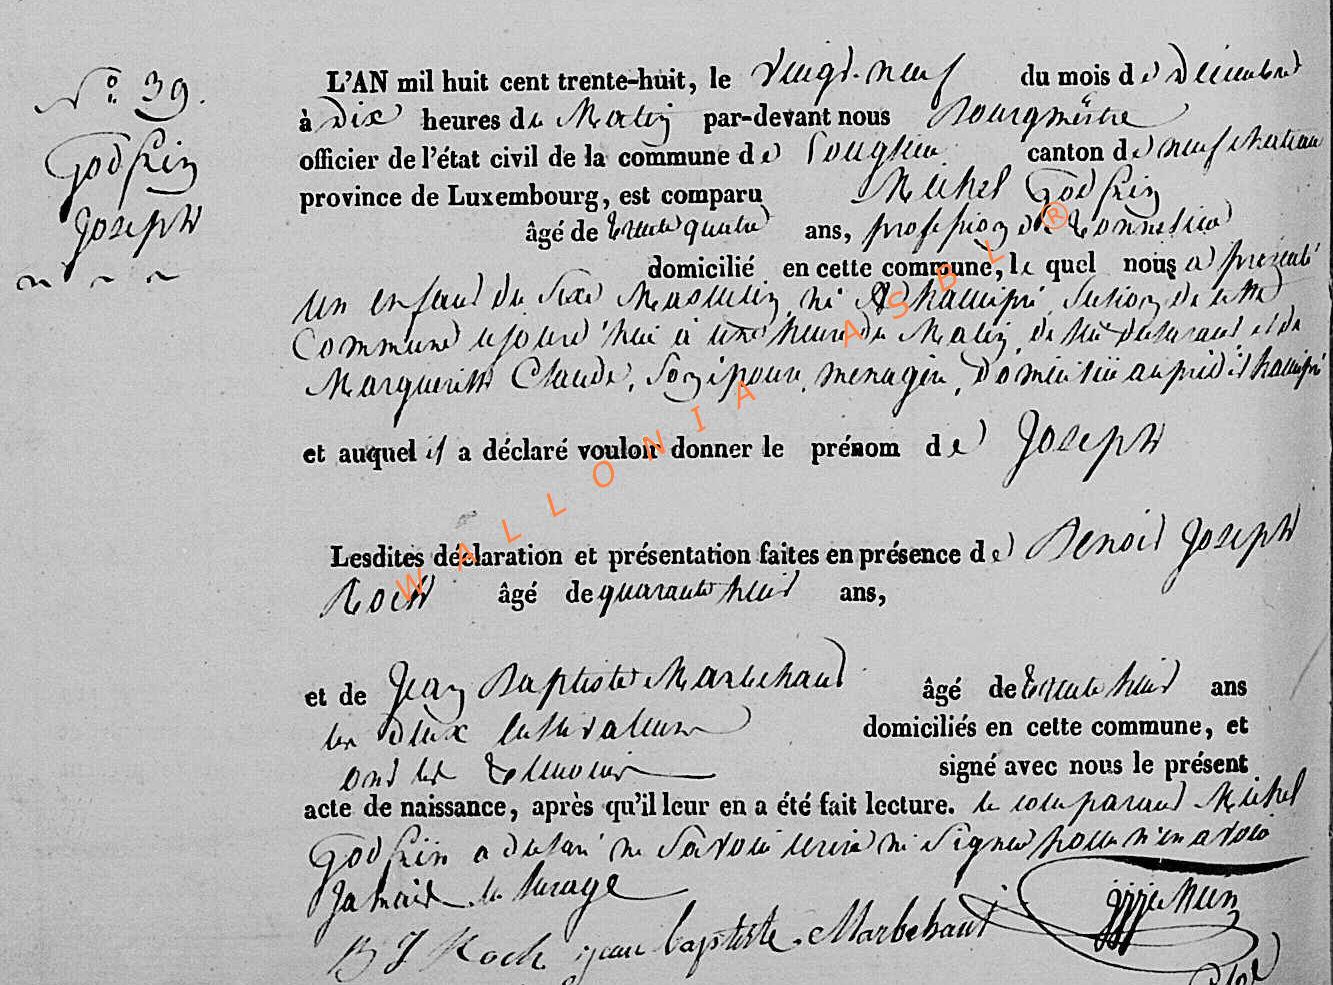 N° 39.
Godfrin
Joseph
L'AN mil huit cent trente-huit, le vingt-neuf du mois de Décembre
à Dix heures du Matin par-devant nous Bourgmestre
officier de l'état civil de la commune de Longlier canton de neufchateau
province de Luxembourg, est comparu Michel Godfrin
âgé de trente quatre ans, profession de tonnelier
domicilié en cette commune, le quel nous a présenté
un enfant du sexe Masculin, né à hamipré section de cette
Commune ce jourd'hui à une heure du Matin, de lui déclarant et de
Margueritte Claude, son épouse, menagère, Domiciliée au prédit hamipré
et auquel il a déclaré vouloir donner le prénom de Joseph
Lesdites déclaration et présentation faites en présence de Benoit Joseph
Koch âgé de quarante huit ans,
et de Jean Baptiste Marbehant âgé de trente huit ans
les deux cultivateurs domiciliés en cette commune, et
ont les témoins signé avec nous le présent
acte de naissance, après qu'il leur en a été fait lecture. le comparant Michel
Godfrin a déclaré ne savoir écrire ni signer pour n'en avoir
Jamais eu l'usage
B J Koch jean baptiste Marbehant
WALLONIA ASBL ®